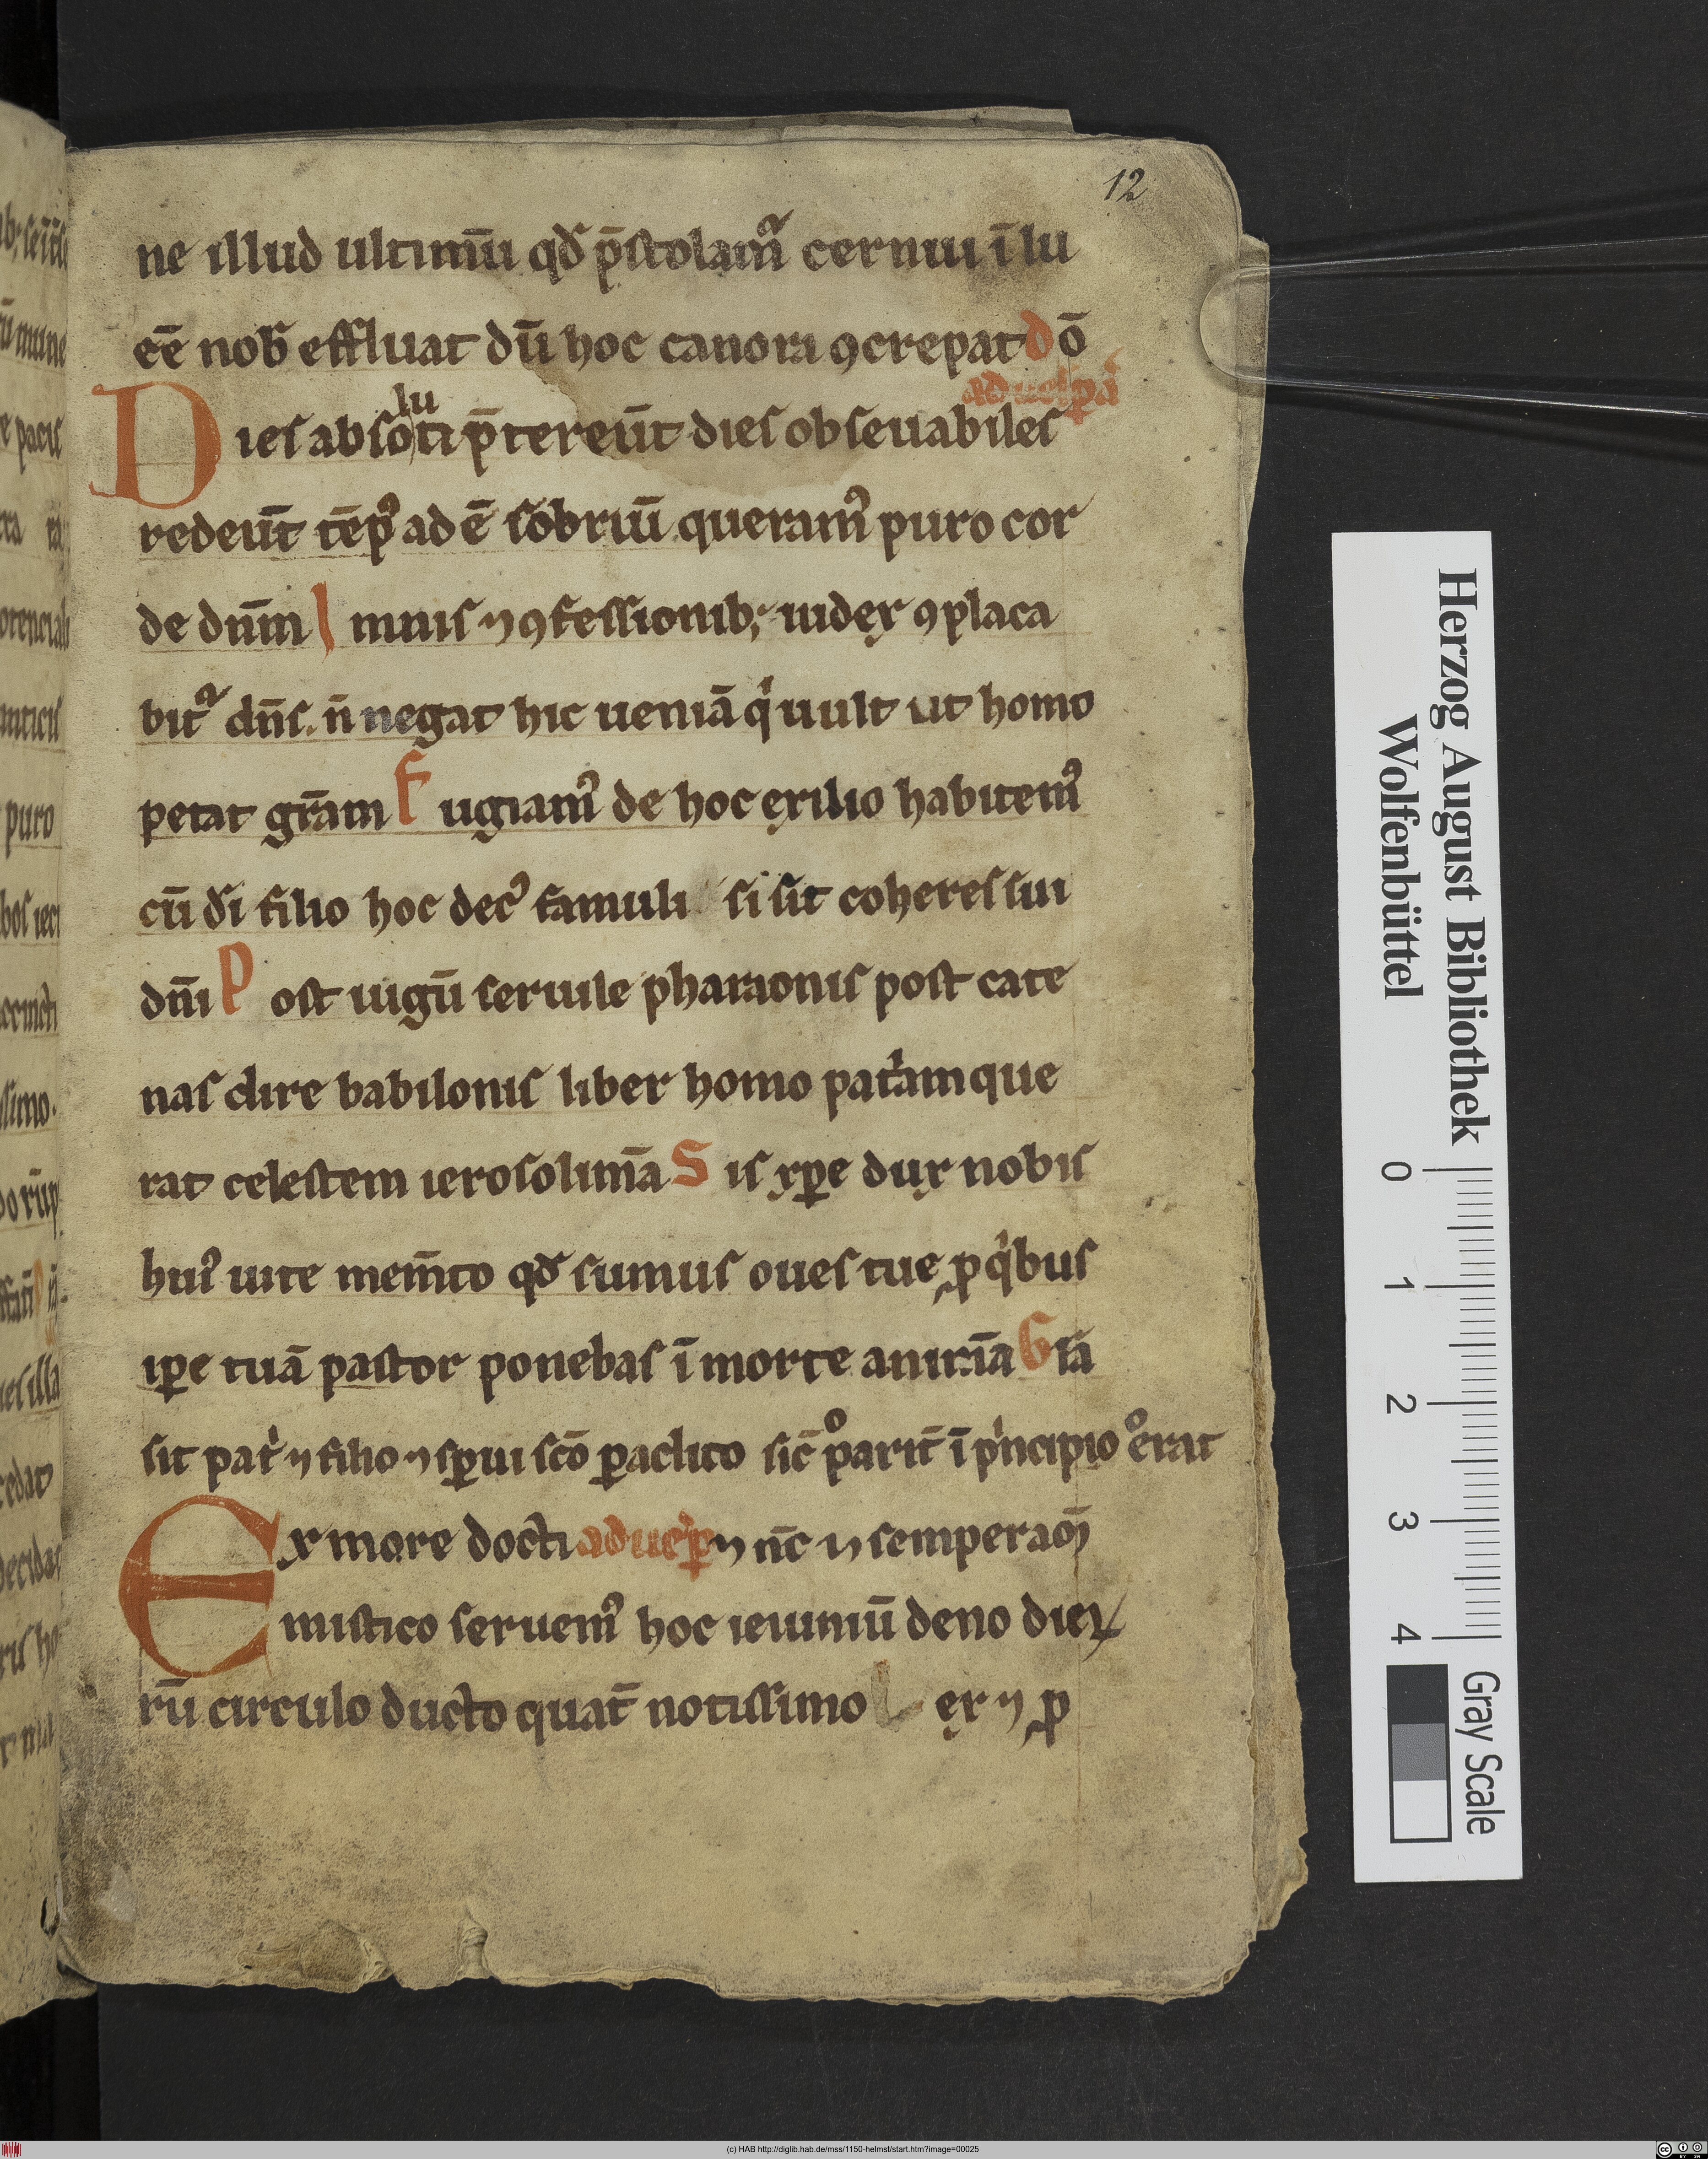 12
ne illud ultimū qđ p̄stolam᷑ cernui ī lu
cē nob̄ effluat dū hoc canora ꝯcrepat dō
ad uesp̄a
Dies absoluti p̄tereūt dies obseuabiles
redeūt tēpꝰ adē sobriū queramꝰ puro cor
de dn̄m Imnis ⁊ ꝯfessionibꝫ iudex ꝯplaca
bit᷑ dn̄s n̄ negat hic ueniā qͥ uult ut homo
petat gr̄am Fugiamꝰ de hoc exilio habitemꝰ
cū dī filio hoc decꝰ famuli si sit coheres sui
dn̄i Post iugū seruile pharaonis post cate
nas dire babilonis liber homo pat̄am que
rat celestem ierosolimā Sis xp̄e dux nobis
huiꝰ uite mem̄to qđ sumus oues tue ꝓ qͥbus
ip̄e tuā pastor ponebas ī morte animā Gl̄a
sit pat̄ ⁊ filio ⁊ sp̄ui sc̄o ꝑaclito sic̄ ͦparit̄ ī pͥncipio ͦerat
Ex more docti ad uesp̄ ⁊ nc̄ ⁊ semper am̄
mistico seruemꝰ hoc ieiuniū deno dieꝝ
rū circulo ducto quat̄ notissimo Lex ⁊ ꝓ
Herzog August Bibliothek
Wolfenbüttel
0 1 2 3 4
Gray Scale
(c) HAB http://diglib.hab.de/mss/1150-helmst/start.htm?image=00025